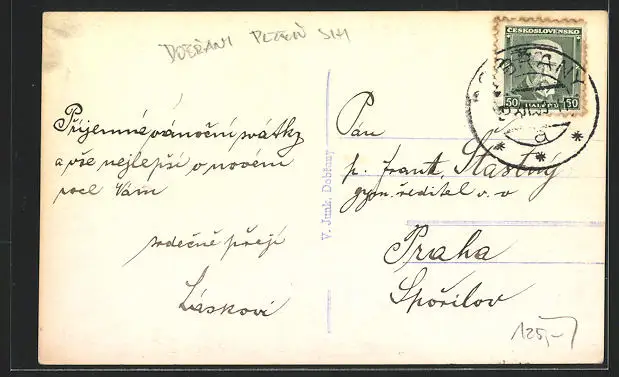 DOBŘANY PLZEŇ JIH
Příjemné vánoční svátky
a vše nejlepší v novém
roce Vám
srdečně přejí
Láskovi
V. Junk, Dobřany
ČESKOSLOVENSKO
50 HALÉŘŮ 50
DOBŘANY
a
Pán
p. Frant. Šťastný
gym. ředitel v. v.
Praha
Spořilov
125,-